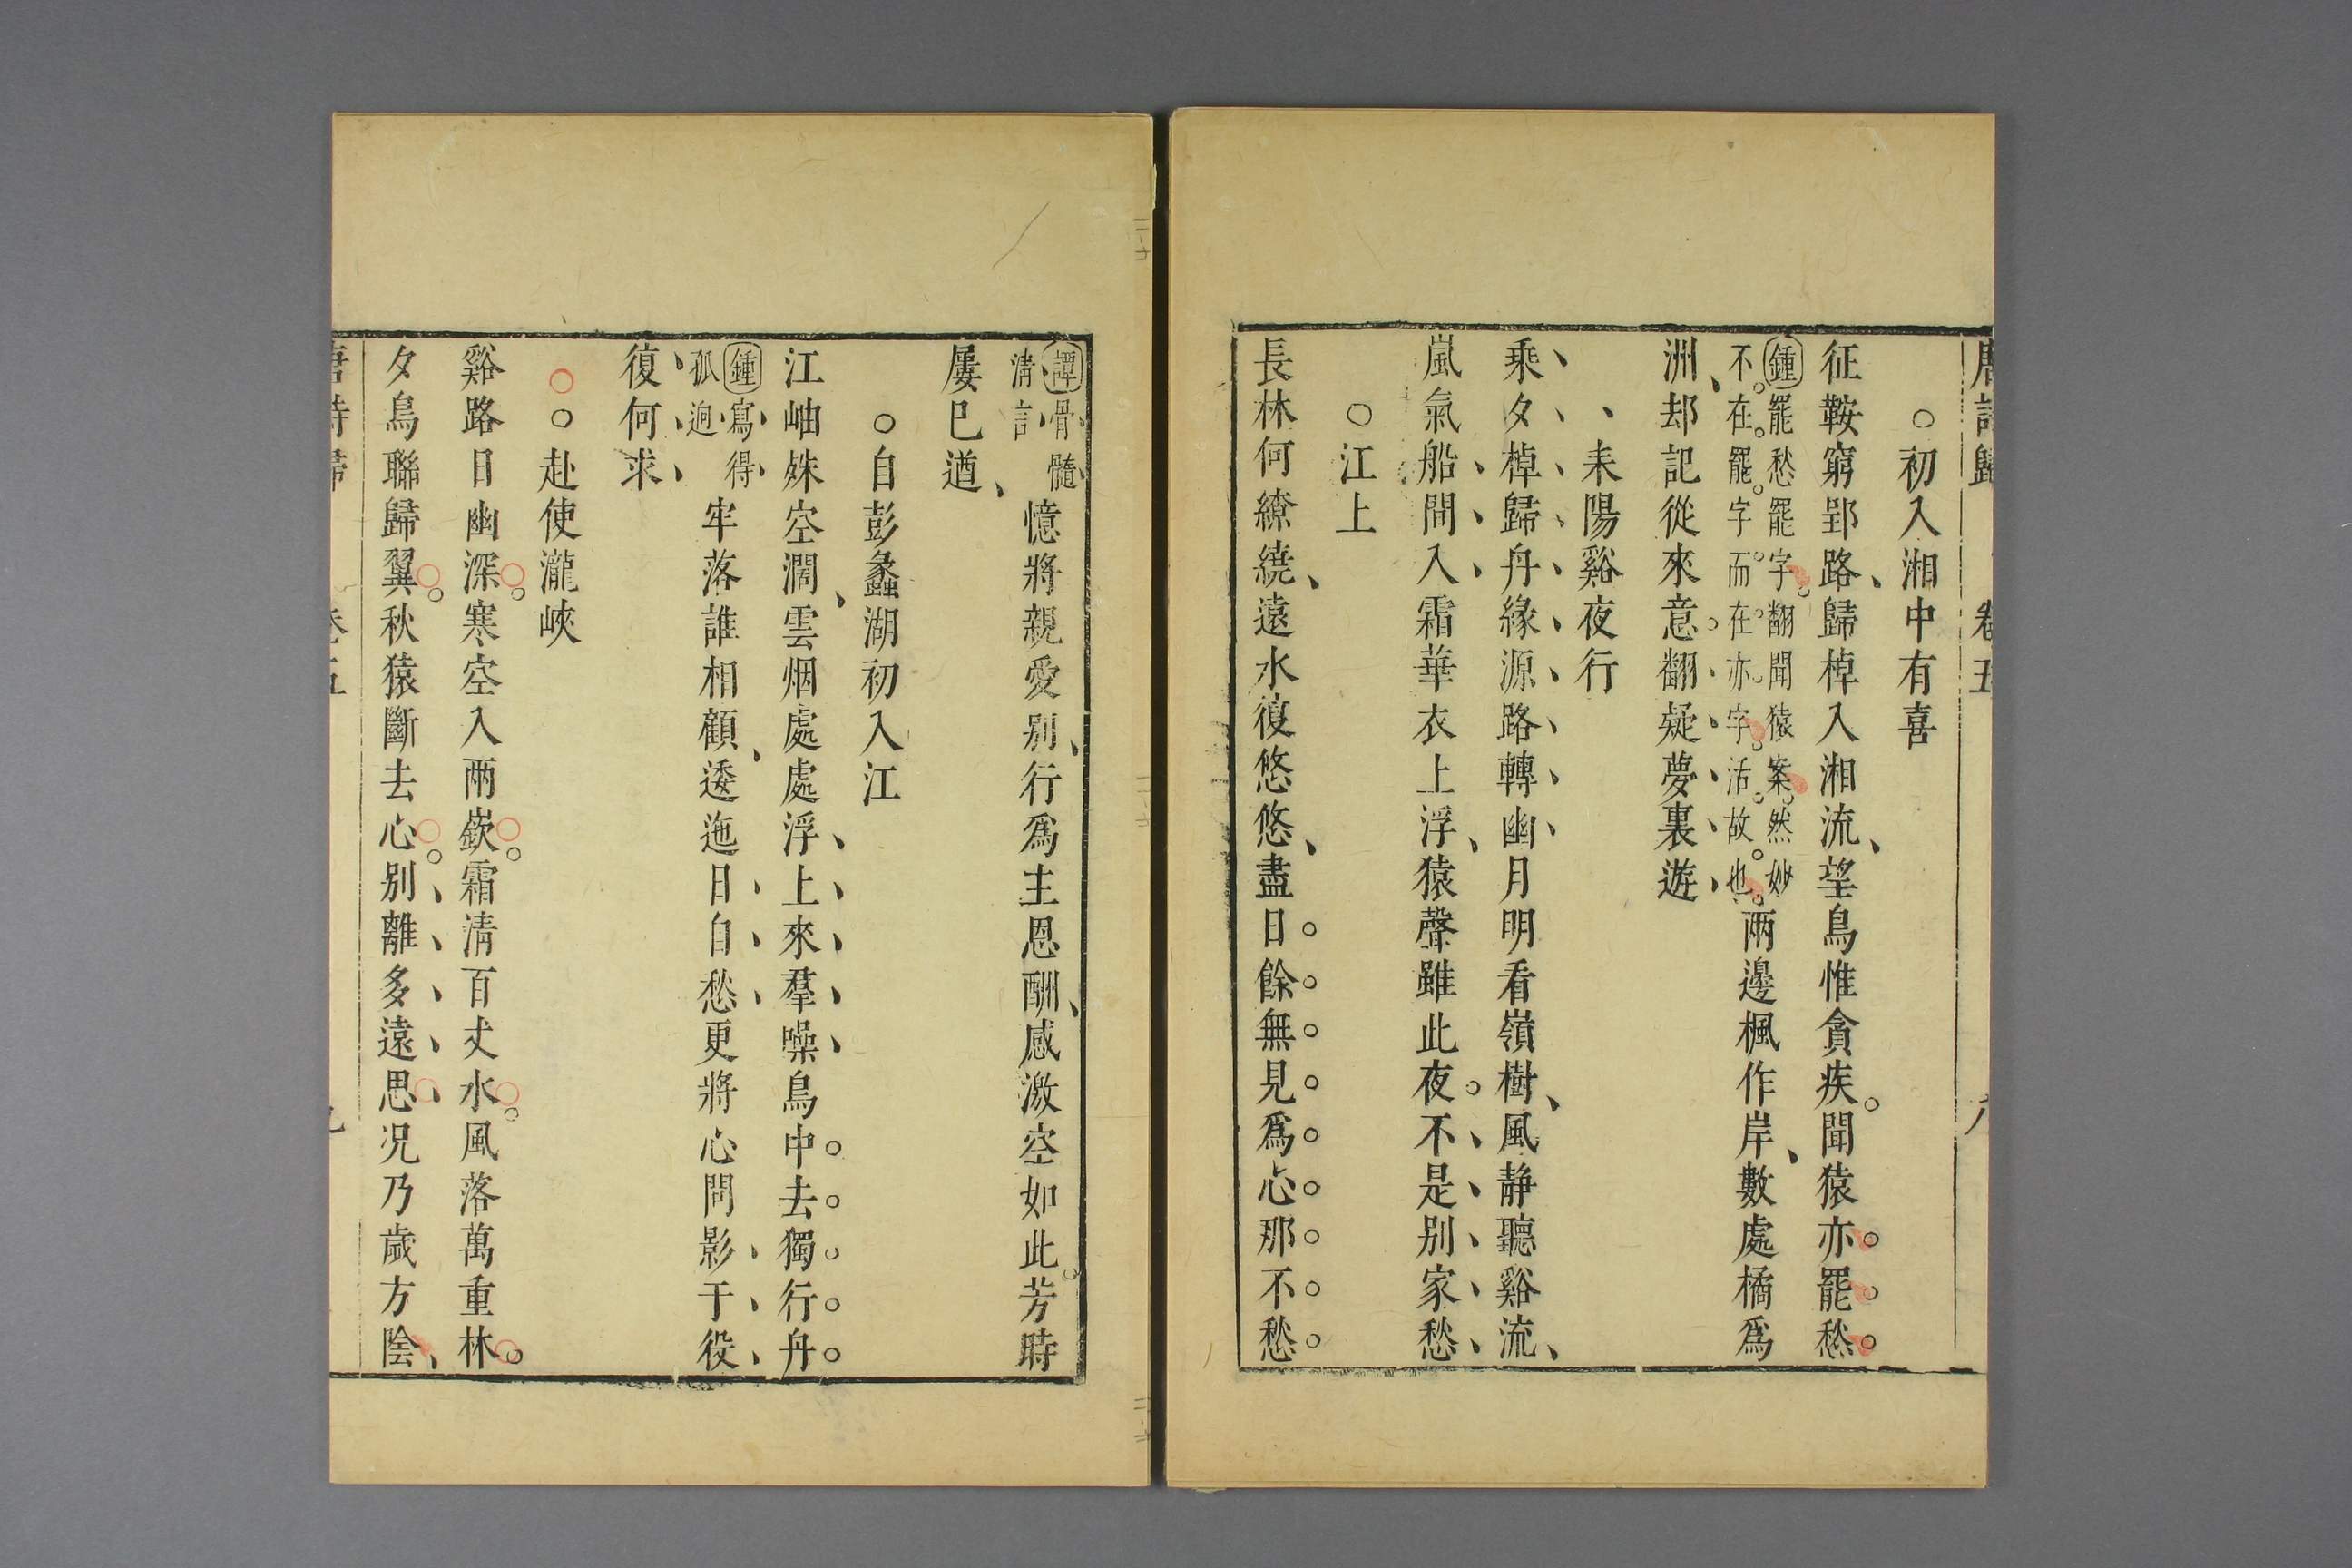 唐詩歸 卷五 八
初入湘中有喜
征鞍窮郢路歸棹入湘流望鳥惟貪疾聞猿亦罷愁
鍾罷愁罷字翻聞猿案然妙
不在罷字而在亦字活故也
兩邊楓作岸數處橘爲
洲却記從來意翻疑夢裏遊
耒陽谿夜行
乘夕棹歸舟緣源路轉幽月明看嶺樹風静聽谿流
嵐氣船間入霜華衣上浮猿聲雖此夜不是别家愁
江上
長林何繚繞遠水復悠悠盡日餘無見爲心那不愁
譚骨髓
清言
憶將親愛别行爲主恩酬感激空如此芳時
屢已遒
自彭蠡湖初入江
江岫姝空濶雲烟處處浮上來羣噪鳥中去獨行舟
鍾寫得
孤迥
牢落誰相顧逶迤日自愁更將心問影于役
復何求
赴使瀧峽
谿路日幽深寒空入兩嶔霜清百丈水風落萬重林
夕鳥聯歸翼秋猿斷去心别離多遠思况乃歲方陰
唐詩歸 卷五 九